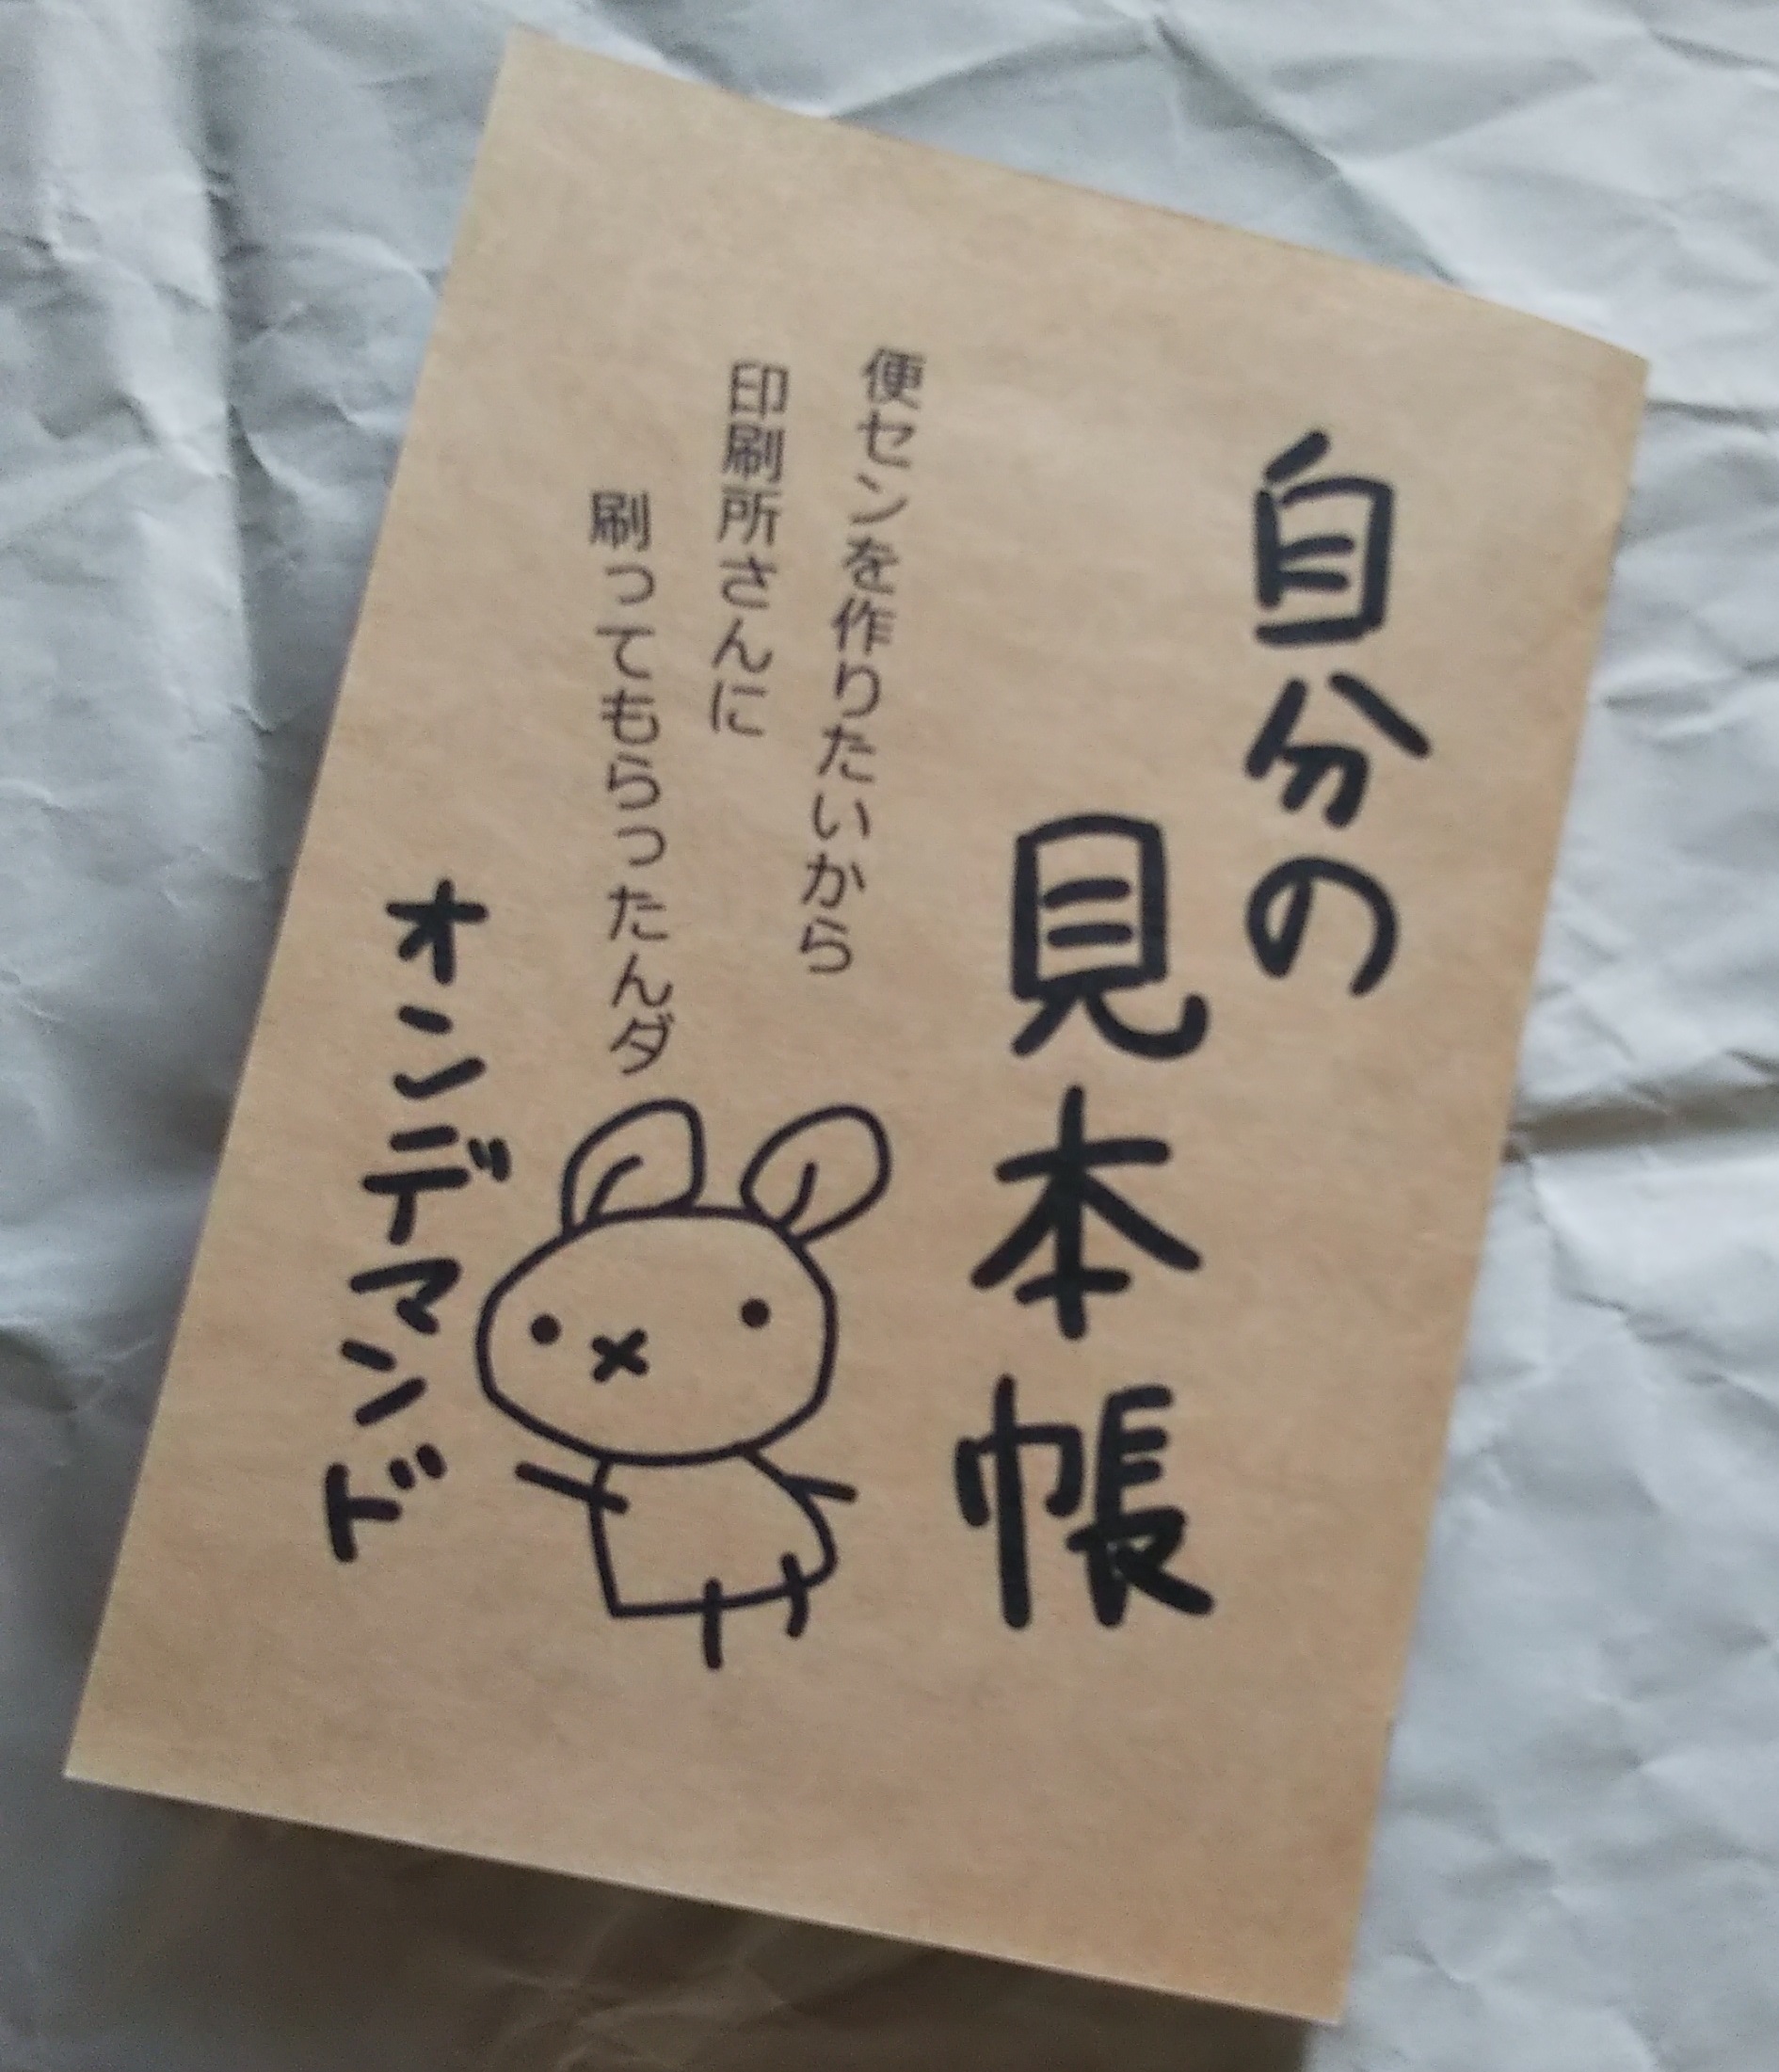 自分の
見本帳
便センを作りたいから
印刷所さんに
刷ってもらったんダ
オンデマンド